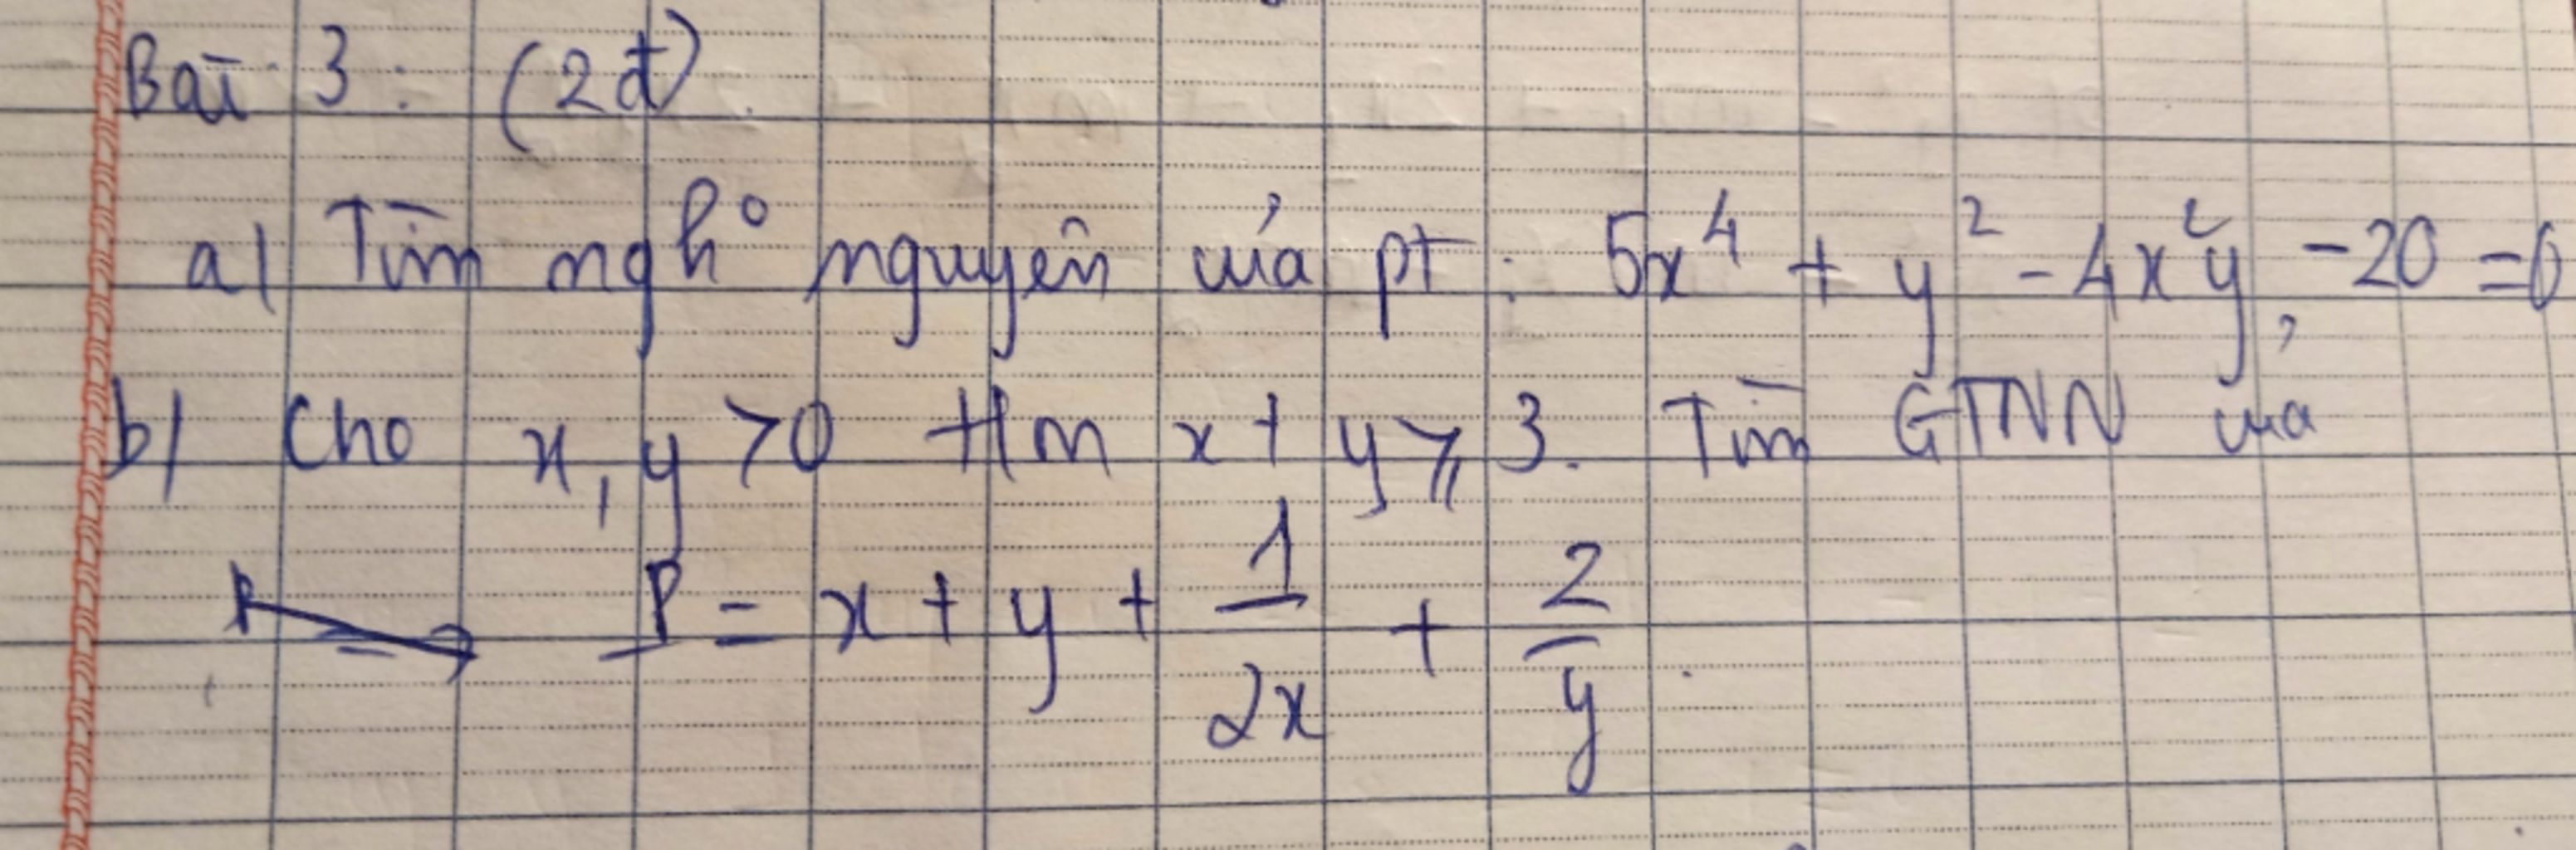 Bài 3: (2đ).
a/ Tìm ngh° nguyên của pt: 5x⁴ + y² - 4x²y - 20 = 0
b/ Cho x, y > 0 t/m x + y ⩾ 3. Tìm GTNN của
P = x + y + 1/2x + 2/y.